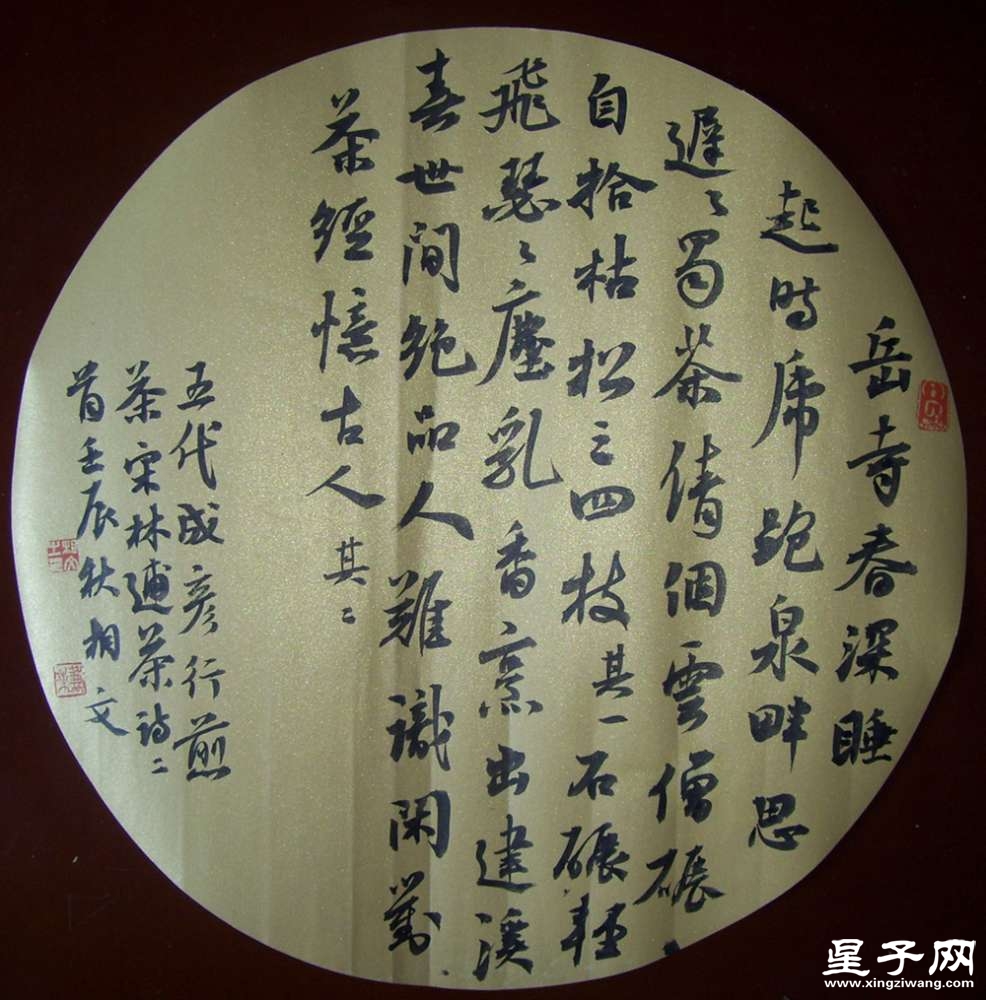 岳寺春深睡
起时虎跑泉畔思
遲々蜀茶倩個雲僧碾
自拾枯松三四枝其一石碾輕
飛瑟々塵乳香烹出建溪
春世間絶品人難識閑對
茶經憶古人其二
五代成彦行煎
茶宋林逋茶詩二
首壬辰秋相文
星子网
www.xingziwang.com